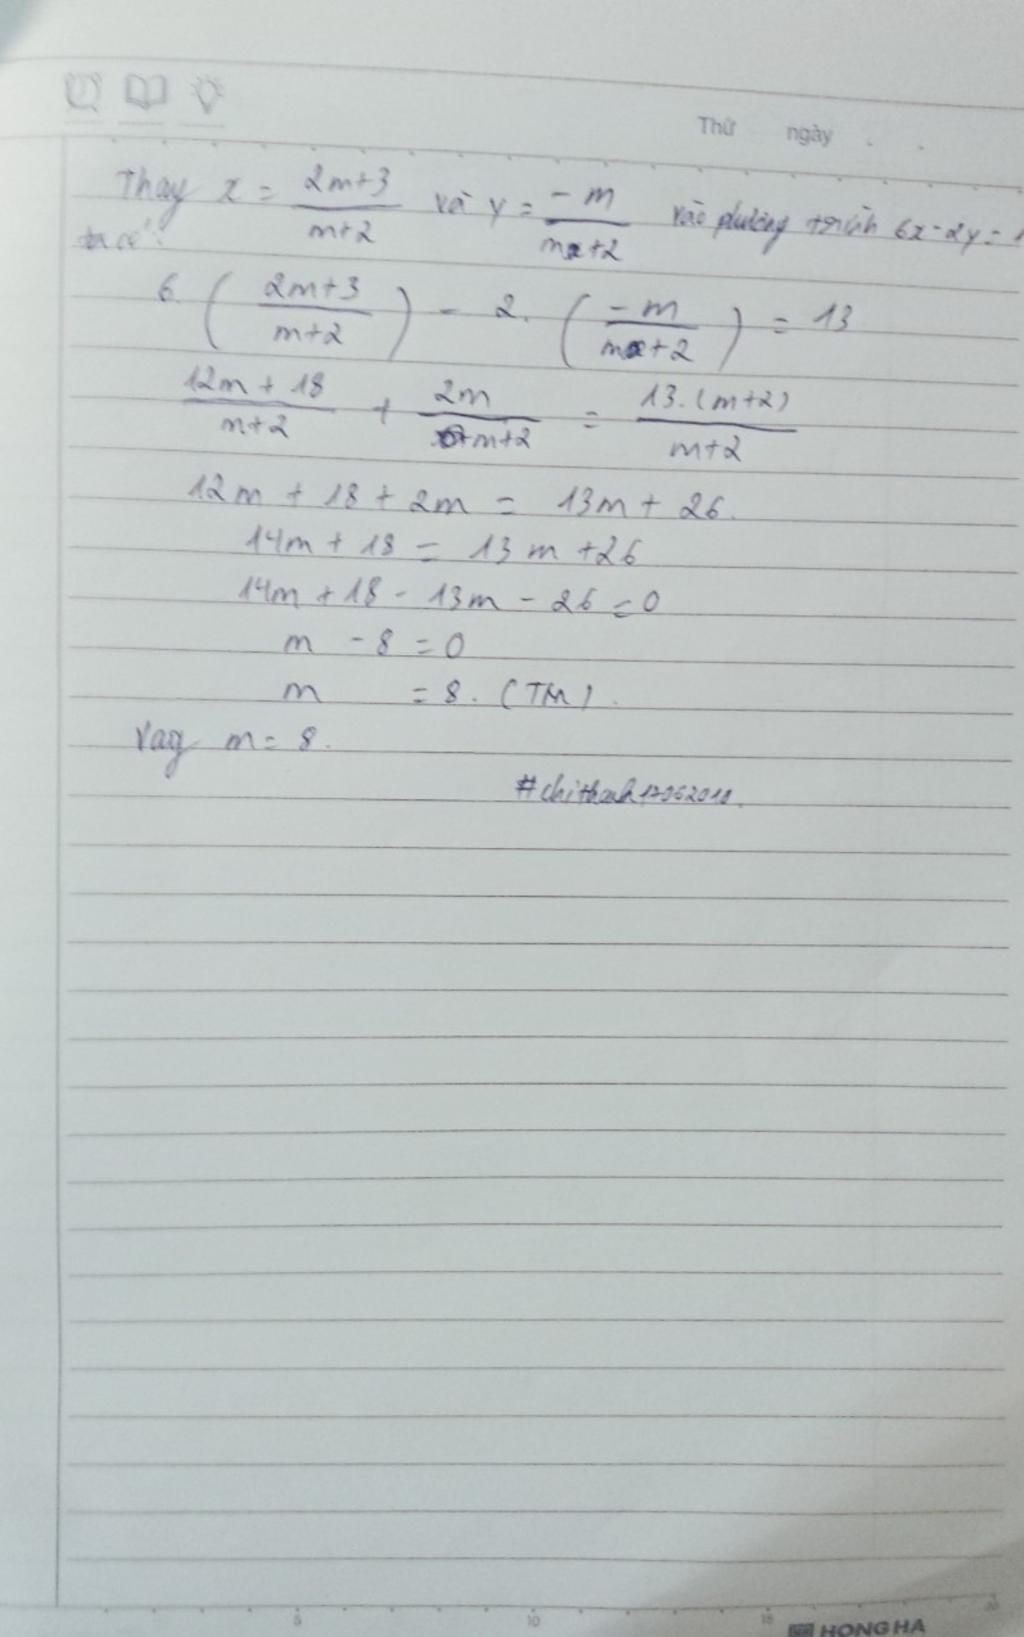 Thứ ngày . .
Thay x = \frac{2m+3}{m+2} và y = \frac{-m}{m+2} vào phương trình 6x-2y=1
ta có:
6. \left( \frac{2m+3}{m+2} \right) - 2. \left( \frac{-m}{m+2} \right) = 13
\frac{12m + 18}{m+2} + \frac{2m}{m+2} = \frac{13.(m+2)}{m+2}
12m + 18 + 2m = 13m + 26.
14m + 18 = 13m +26
14m +18 - 13m - 26 = 0
m - 8 = 0
m = 8. (TM).
Vay m = 8.
#chithanh17062010.
5 10 15 20
HONG HA